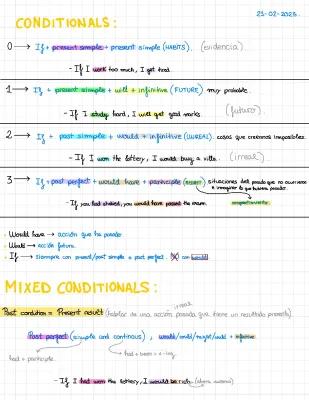 21-02-2025.
CONDITIONALS:
0 → If + present simple + present simple (HABITS). (evidencia).
- If I work too much, I get tired.
1 → If + present simple + will + infinitive (FUTURE) muy probable.
- If I study hard, I will get good marks. (futuro).
2 → If + past simple + would + infinitive (UNREAL). cosas que creemos imposibles.
- If I won the lottery, I would buy a villa. (irreal).
3 → If + past perfect + would have + participle situaciones del pasado que no ocurrieron
e imaginar lo que hubiera pasado.
- If you had studied, you would have passed the exam.
· Would have → acción que ha pasado.
· Would → acción futura.
· If → siempre con present/past simple o past perfect. NO con would.
MIXED CONDITIONALS:
irreal
Past condition = Present result (hablar de una acción pasada que tiene un resultado presente).
Past perfect (simple and continous), would/could/might/should + infinitive
had + participle. had + been + -ing.
- If I had won the lottery, I would be rich.